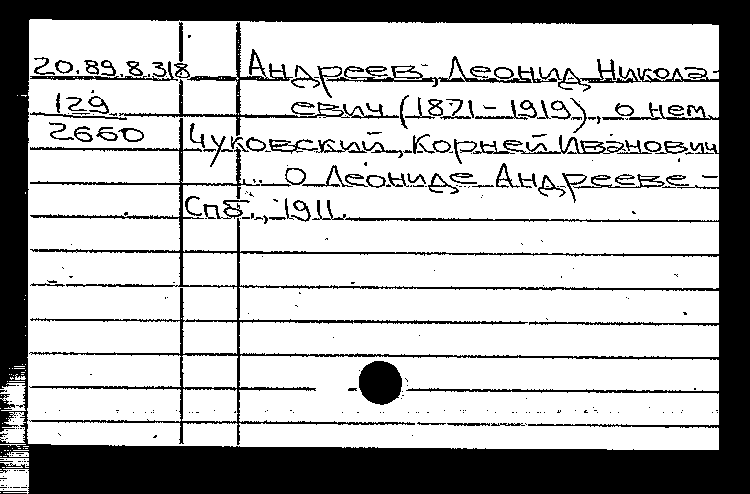 20.89.8.318 Андреев, Леонид Никола-
129 евич (1871-1919), о нем.
2660 Чуковский, Корней Иванович
... О Леониде Андрееве.-
Спб., 1911.